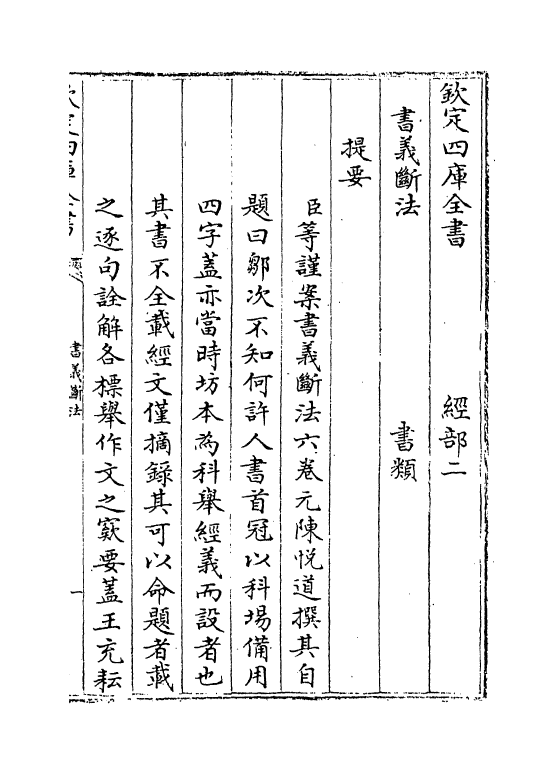 欽定四庫全書 經部二
書義斷法 書類
提要
臣等謹案書義斷法六卷元陳悅道撰其自
題曰鄒次不知何許人書首冠以科場備用
四字蓋亦當時坊本為科舉經義而設者也
其書不全載經文僅摘錄其可以命題者載
之逐句詮解各標舉作文之窾要蓋王充耘
欽定四庫全書
書義斷法
一